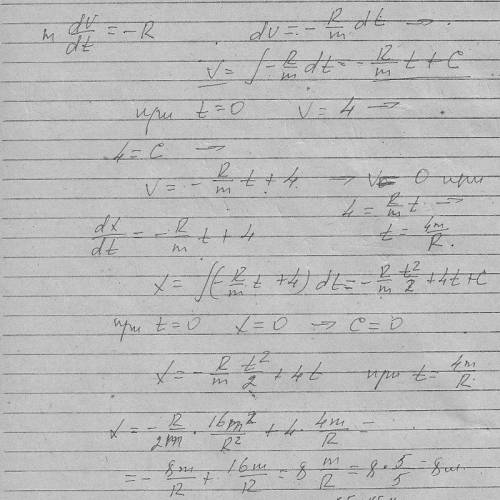 m dv/dt = -R    dv = -R/m dt →
v = ∫ -R/m dt = -R/m t + C
при t=0    v = 4 →
4 = C →
v = -R/m t + 4 → v = 0 при
4 = R/m t →
dx/dt = -R/m t + 4    t = 4m/R.
x = ∫(-R/m t + 4) dt = -R/m t²/2 + 4t + C
при t=0    x=0 → C=0
x = -R/m t²/2 + 4t    при t = 4m/R
x = -R/2m · 16m²/R² + 4 · 4m/R =
= -8m/R + 16m/R = 8 m/R = 8 · 5/5 = 8м.